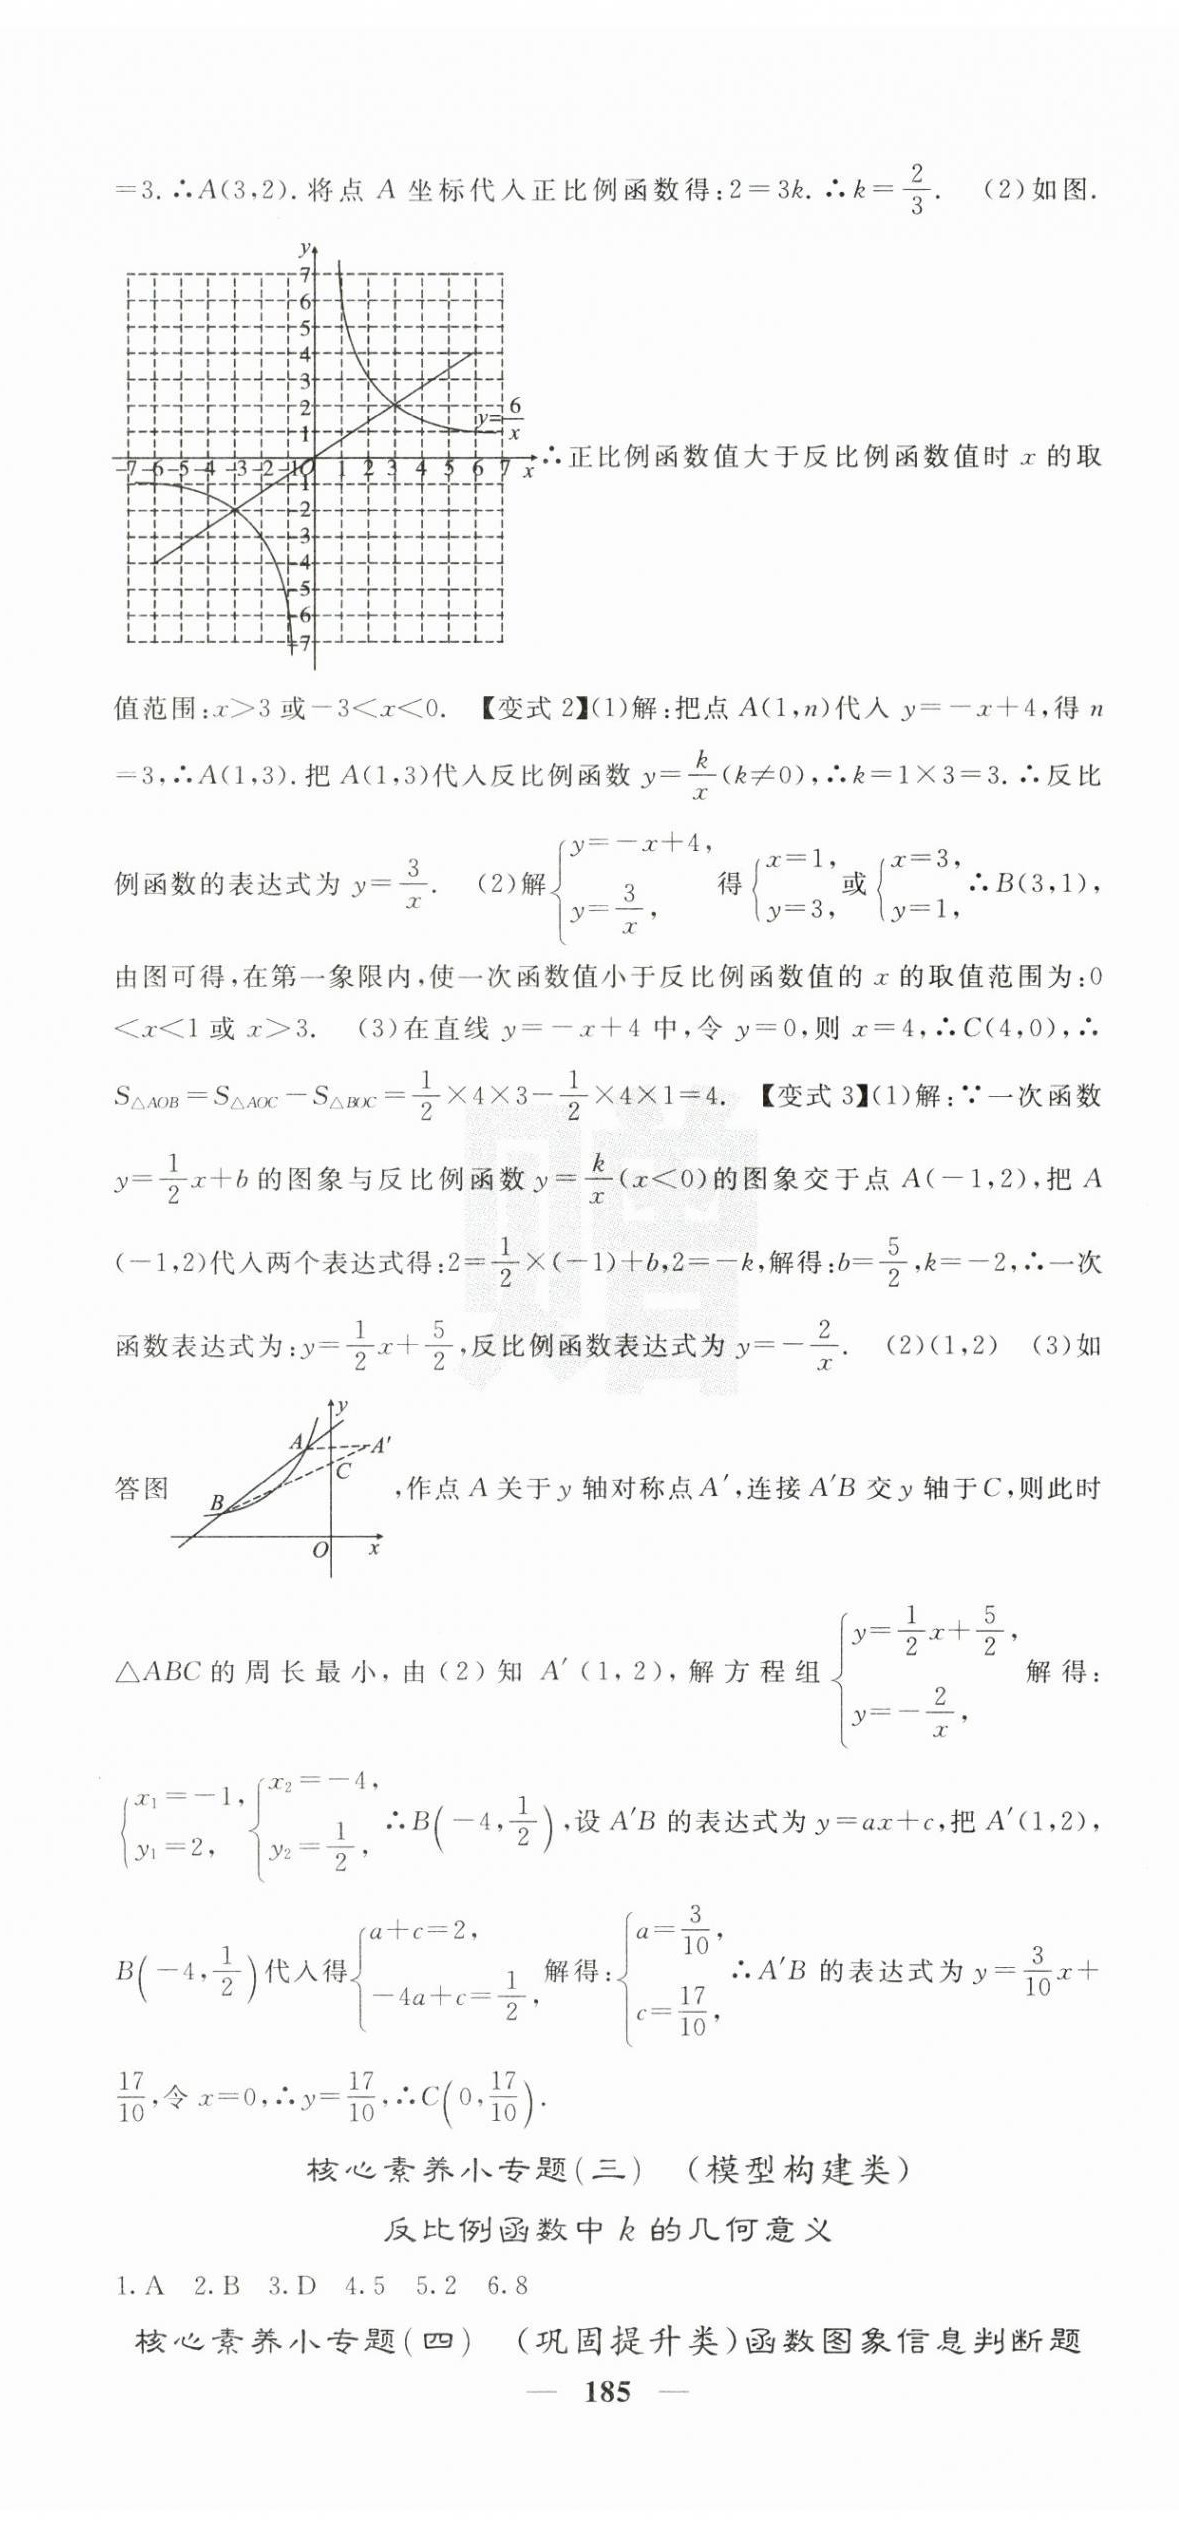 =3.∴A(3,2).将点 A 坐标代入正比例函数得:2=3k.∴k=2/3. (2)如图.
y
7
6
5
4
3
2
1
y=6/x
-7 -6 -5 -4 -3 -2 -1 O 1 2 3 4 5 6 7 x
-1
-2
-3
-4
-5
-6
-7
∴正比例函数值大于反比例函数值时 x 的取
值范围:x>3 或-3<x<0. 【变式 2】(1)解:把点 A(1,n)代入 y=-x+4,得 n
=3,∴A(1,3).把 A(1,3)代入反比例函数 y=k/x(k≠0),∴k=1×3=3.∴反比
例函数的表达式为 y=3/x. (2)解{y=-x+4, y=3/x, 得{x=1, y=3, 或{x=3, y=1, ∴B(3,1),
由图可得,在第一象限内,使一次函数值小于反比例函数值的 x 的取值范围为:0
<x<1 或 x>3. (3)在直线 y=-x+4 中,令 y=0,则 x=4,∴C(4,0),∴
S△AOB=S△AOC-S△BOC=1/2×4×3-1/2×4×1=4. 【变式 3】(1)解:∵一次函数
y=1/2x+b 的图象与反比例函数 y=k/x(x<0)的图象交于点 A(-1,2),把 A
(-1,2)代入两个表达式得:2=1/2×(-1)+b,2=-k,解得:b=5/2,k=-2,∴一次
函数表达式为:y=1/2x+5/2,反比例函数表达式为 y=-2/x. (2)(1,2) (3)如
答图
y
A
A′
C
B
O
x
,作点 A 关于 y 轴对称点 A′,连接 A′B 交 y 轴于 C,则此时
△ABC 的周长最小,由(2)知 A′(1,2),解方程组{y=1/2x+5/2, y=-2/x, 解得:
{x₁=-1, y₁=2, {x₂=-4, y₂=1/2, ∴B(-4,1/2),设 A′B 的表达式为 y=ax+c,把 A′(1,2),
B(-4,1/2)代入得{a+c=2, -4a+c=1/2, 解得:{a=3/10, c=17/10, ∴A′B 的表达式为 y=3/10x+
17/10,令 x=0,∴y=17/10,∴C(0,17/10).
核心素养小专题(三) (模型构建类)
反比例函数中 k 的几何意义
1.A 2.B 3.D 4.5 5.2 6.8
核心素养小专题(四) (巩固提升类)函数图象信息判断题
— 185 —